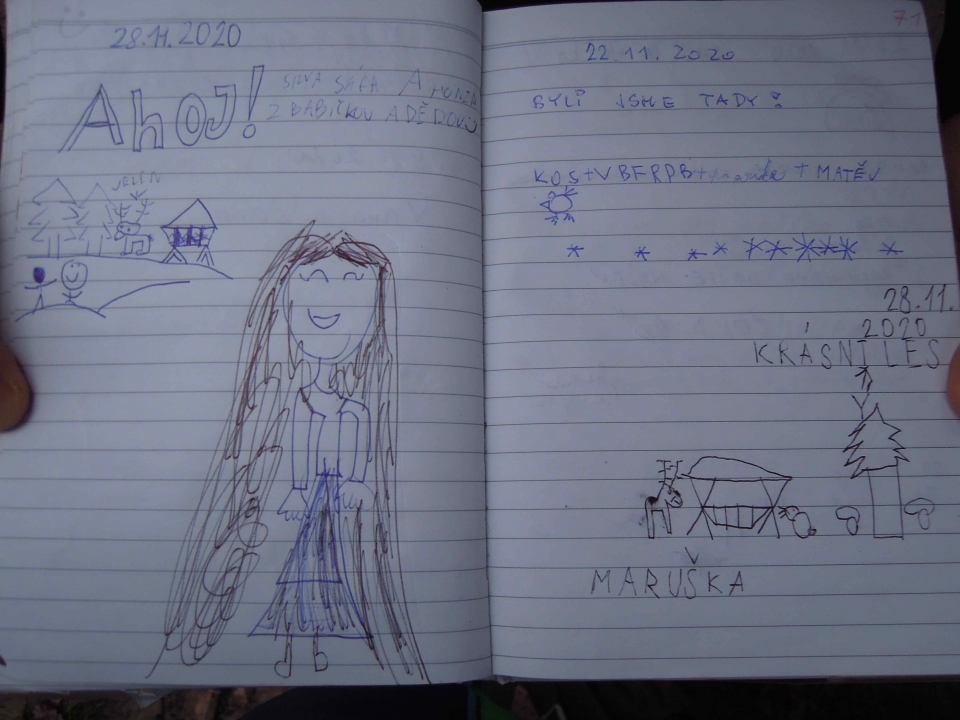 28.11.2020
Ahoj!
SILVA SÁŤA A HONZA
Z BABIČKOU A DĚDOU
JELEN
71
22.11.2020
BYLI JSME TADY!
KOS+VBFRPB+ + MATĚJ
28.11.
2020
KRÁSNÍ LES
MARUŠKA